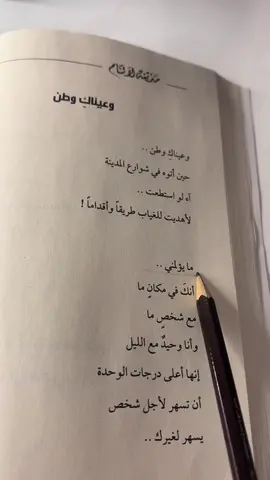 وعيناكِ وطن
وعيناكِ وطن ..
حين أتوه في شوارع المدينة
آه لو استطعت ..
لأهديت للغياب طريقاً وأقداماً !
ما يؤلمني ..
أنكَ في مكانٍ ما
مع شخصٍ ما
وأنا وحيدٌ مع الليل
إنها أعلى درجات الوحدة
أن تسهر لأجل شخص
يسهر لغيرك ..